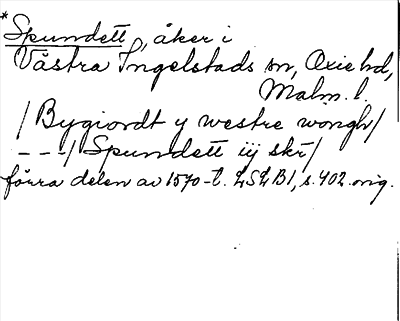 * Spundett, åker i
Västra Ingelstads sn, Oxie hd,
Malm. l.
/ Bygiordt y westre wongh/
---/ Spundett iij skr/
förra delen av 1570-t. LSLB1, s. 402. orig.